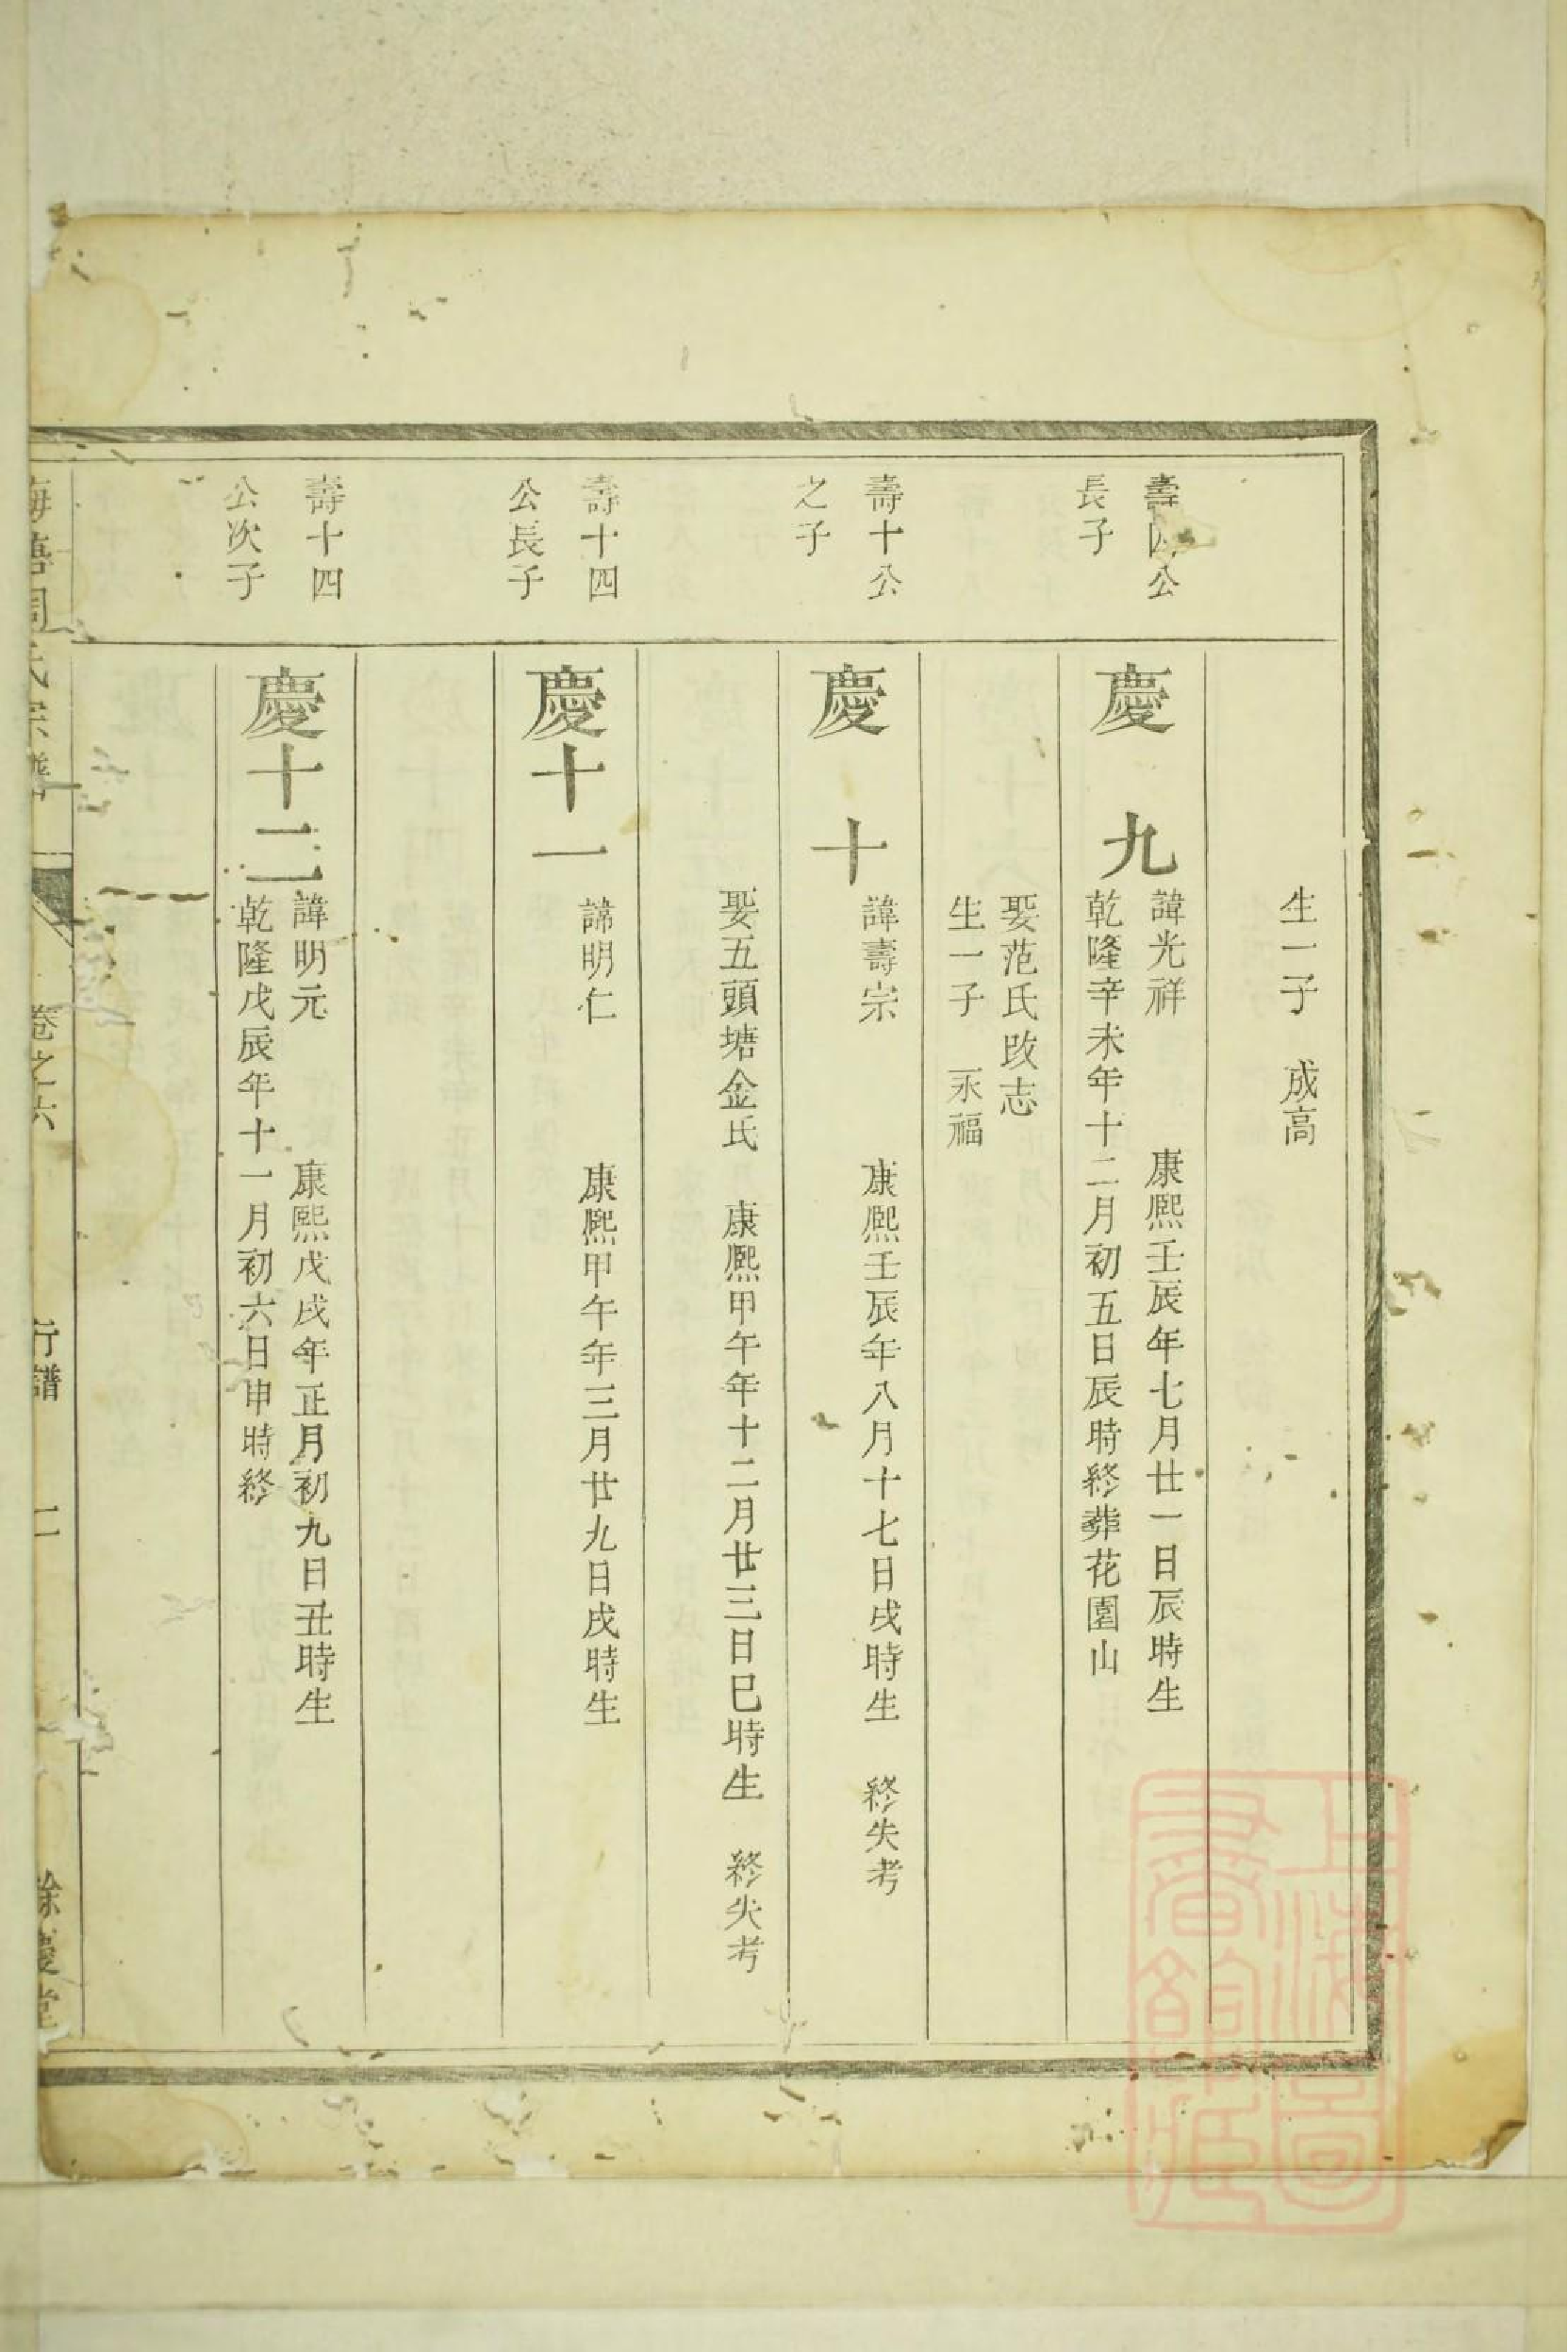 生一子　成高
壽四公
長子
慶九
諱光祥　康熙壬辰年七月廿一日辰時生
乾隆辛未年十二月初五日辰時終葬花園山
娶范氏改志
生一子　永福
壽十公
之子
慶十
諱壽宗　康熙壬辰年八月十七日戌時生　終失考
娶五頭塘金氏　康熙甲午年十二月廿三日巳時生　終失考
壽十四
公長子
慶十一
諱明仁　康熙甲午年三月廿九日戌時生
壽十四
公次子
慶十二
諱明元　康熙戊戌年正月初九日丑時生
乾隆戊辰年十一月初六日申時終
周氏宗譜　卷之六　行譜　二　餘慶堂
上海圖
書館藏